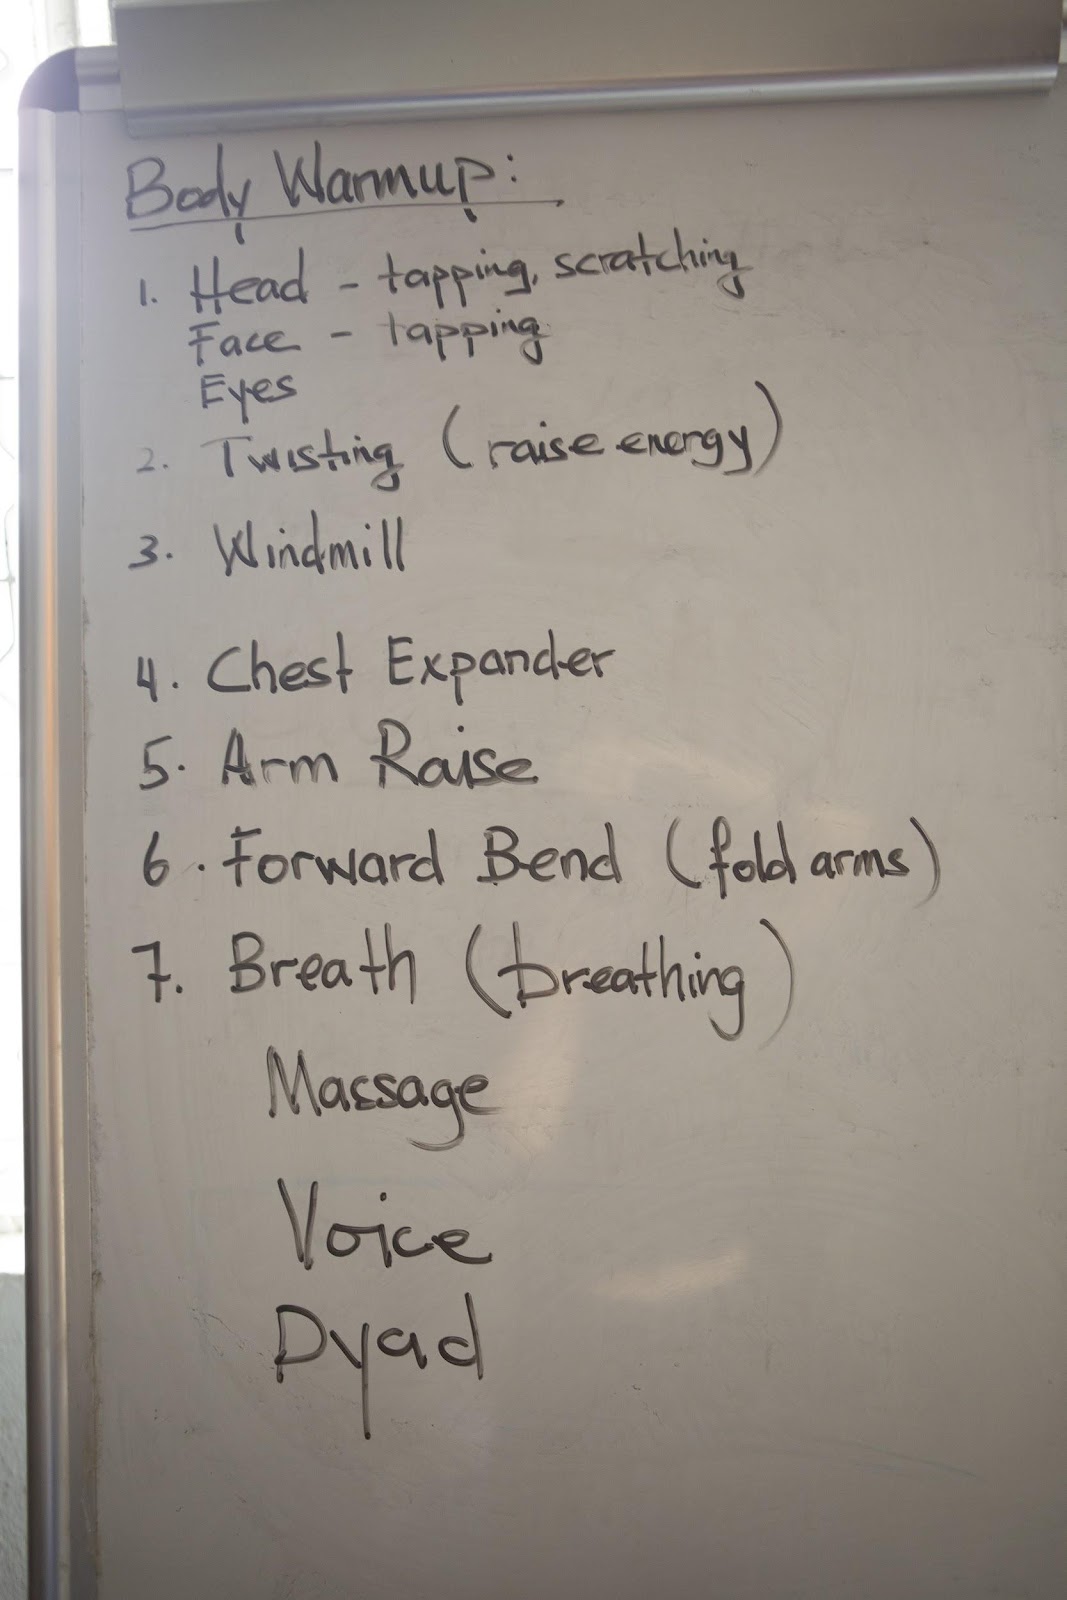 Body Warmup:
1. Head - tapping, scratching
Face - tapping
Eyes
2. Twisting (raise energy)
3. Windmill
4. Chest Expander
5. Arm Raise
6. Forward Bend (fold arms)
7. Breath (breathing)
Massage
Voice
Dyad